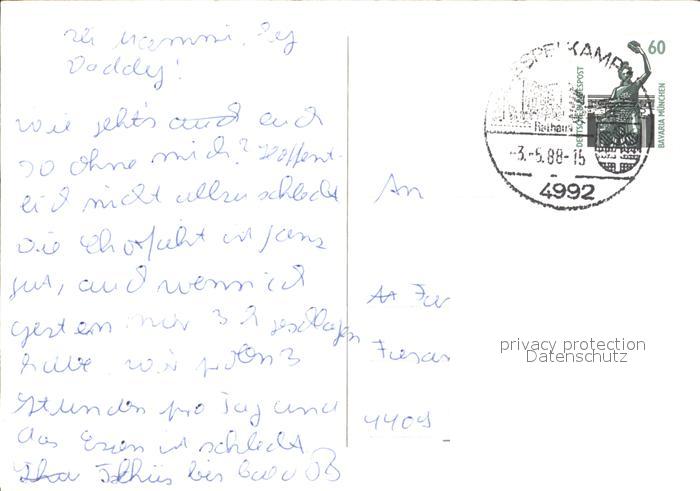 Hi Mammi, Hey
Daddy!
Wie geht's euch
so ohne mich? Hoffent-
lich nicht allzu schlecht
Die Chorfahrt ist ganz
gut, auch wenn ich
gestern nur 3 h geschlafen
habe. Wir proben 3
Stunden pro Tag und
das Essen ist schlecht
Tschüs bis bald
An
4409
ESPELKAMP
Rathaus
-3.-5.88-15
4992
60
DEUTSCHE BUNDESPOST
BAVARIA MÜNCHEN
privacy protection
Datenschutz